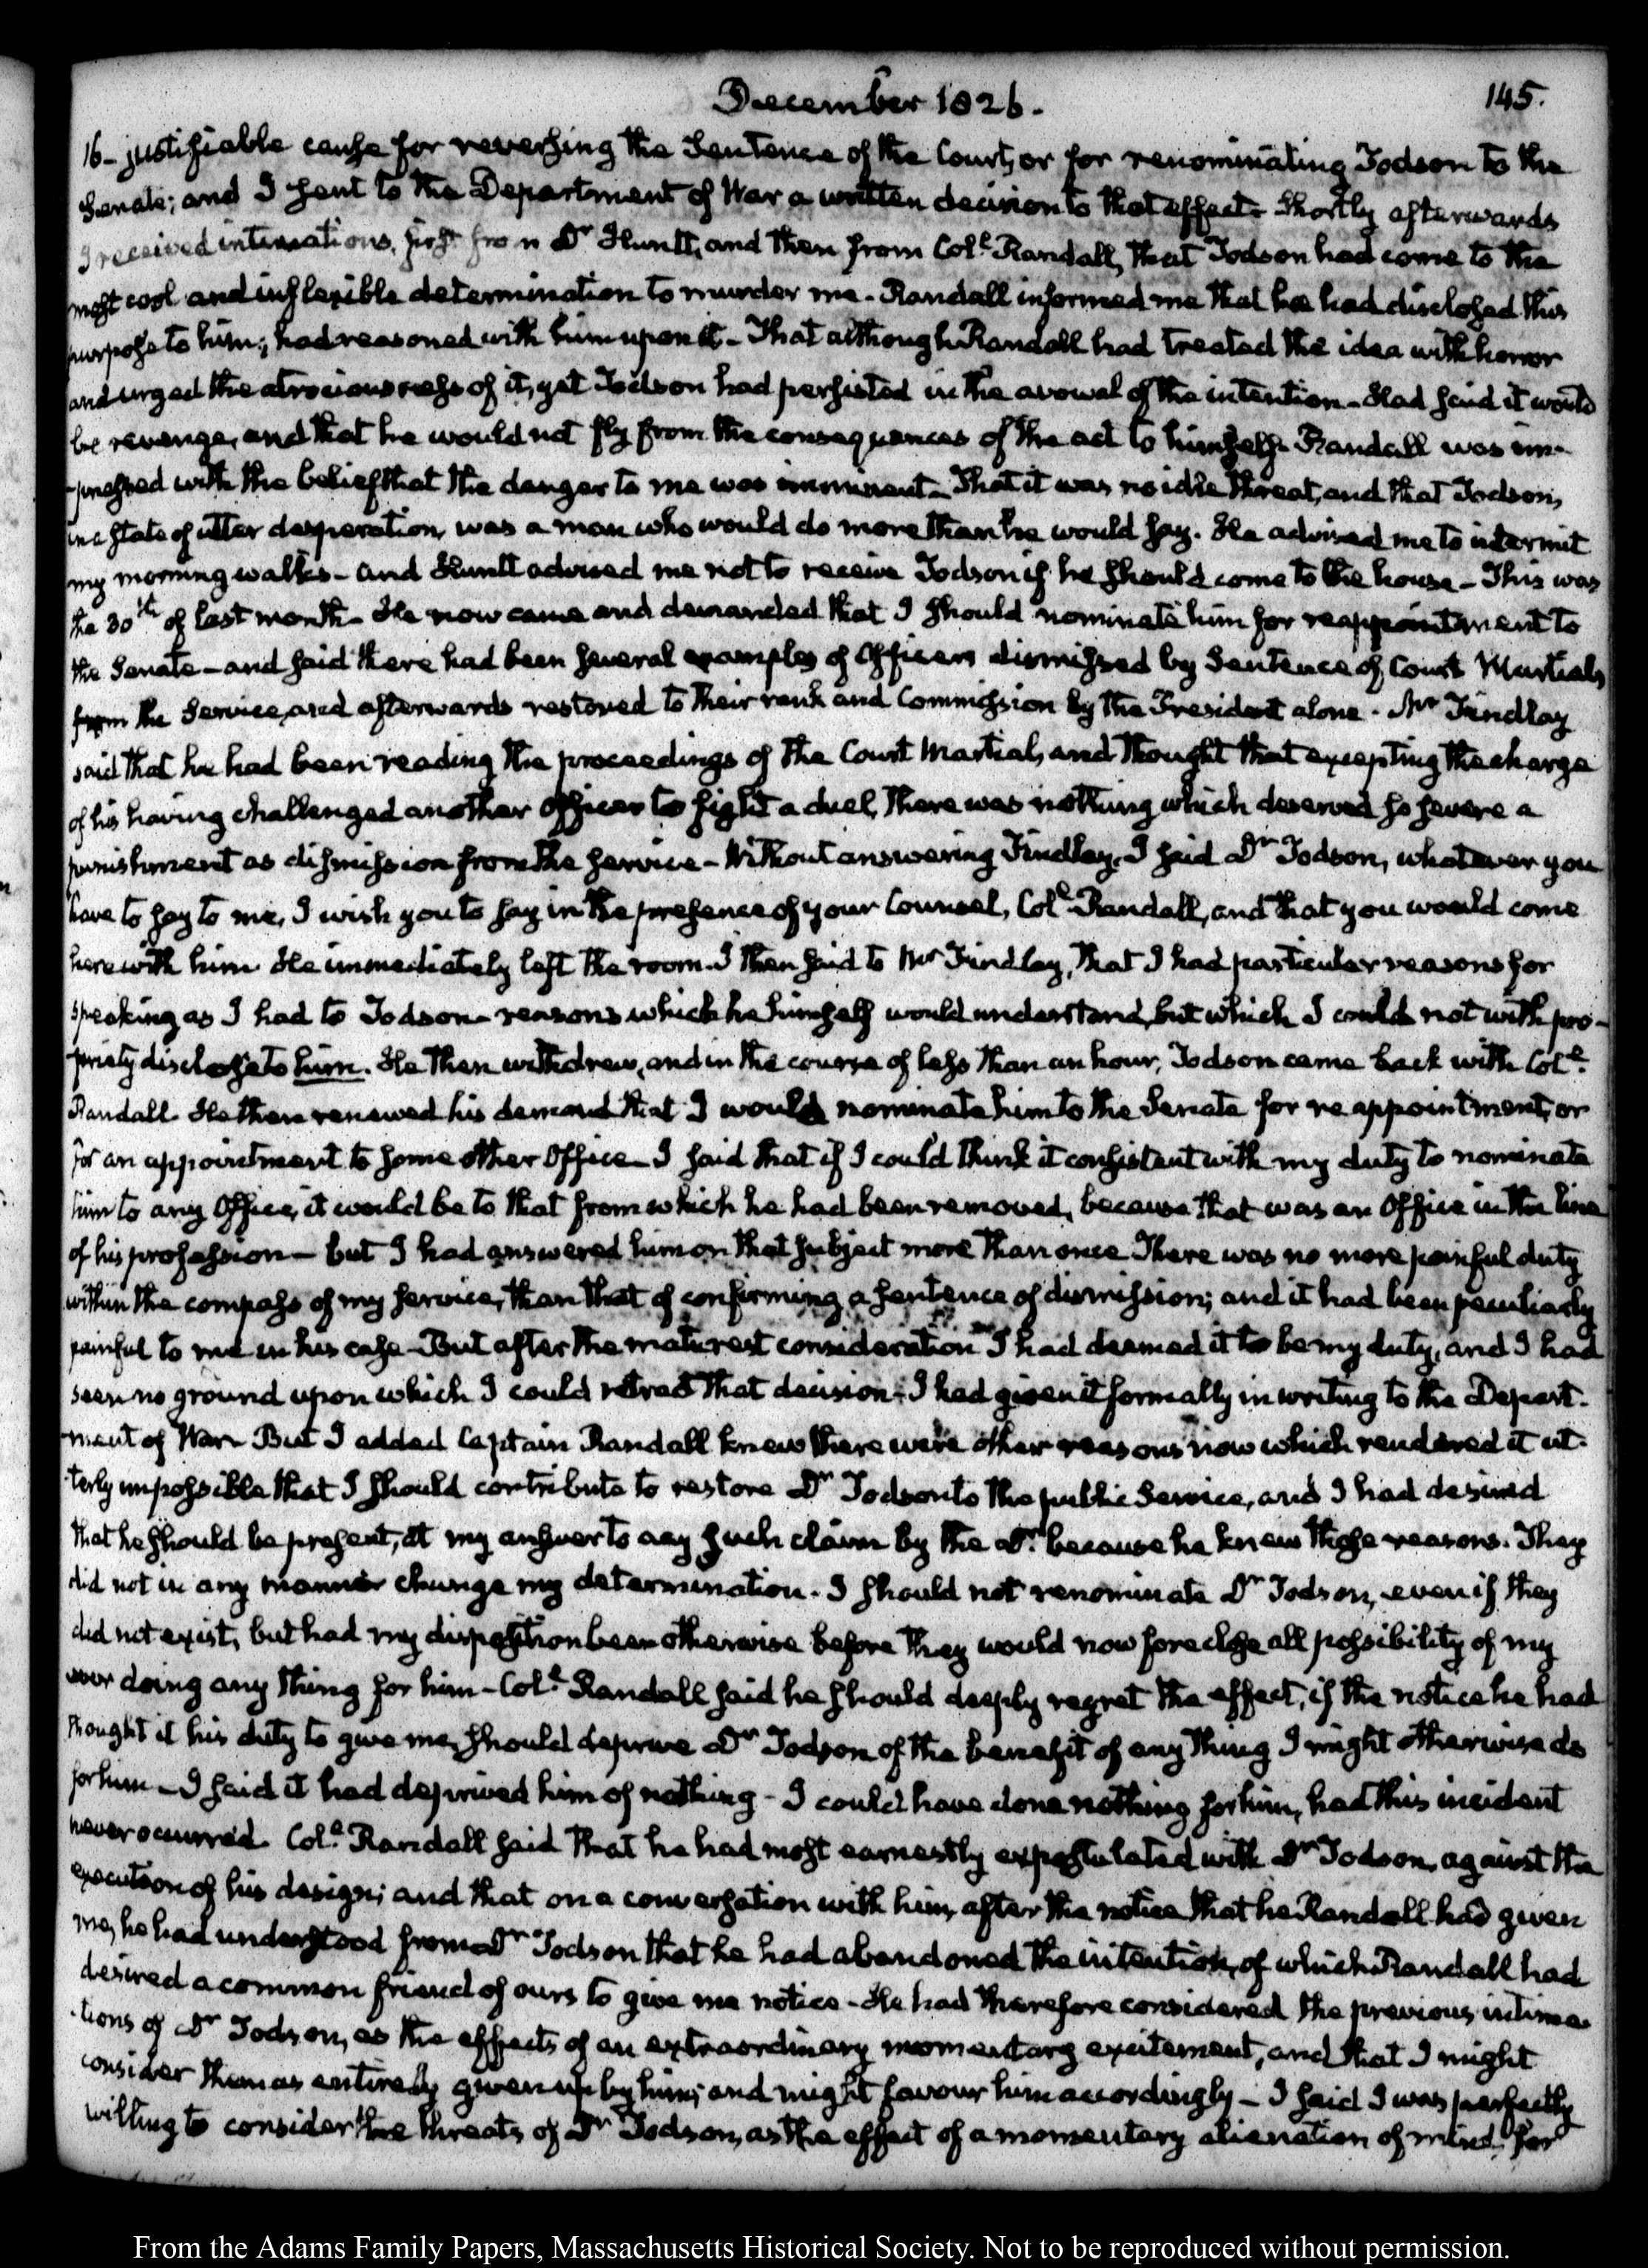 December 1826.
145.
16- justifiable cause for reversing the Sentence of the Court, or for renominating Todson to the
Senate; and I sent to the Department of War a written decision to that effect. Shortly afterwards
I received intimations, first from Dr Huntt, and then from Coll. Randall, that Todson had come to the
most cool and inflexible determination to murder me. Randall informed me that he had disclosed this
purpose to him; had reasoned with him upon it - That although Randall had treated the idea with horror
and urged the atrociousness of it, yet Todson had persisted in the avowal of the intention - Had said it would
be revenge, and that he would not fly from the consequences of the act to himself. Randall was im-
-pressed with the belief that the danger to me was imminent. That it was no idle threat, and that Todson,
in a State of utter desperation, was a man who would do more than he would say. He advised me to intermit
my morning walks - and Huntt advised me not to receive Todson if he should come to the house - This was
the 30th of last month. He now came and demanded that I should nominate him for reappointment to
the Senate - and said there had been several examples of Officers dismissed by Sentence of Court Martials
from the Service, and afterwards restored to their rank and Commission by the President alone. Mr Findlay
said that he had been reading the proceedings of the Court Martial, and thought that excepting the charge
of his having challenged another Officer to fight a duel, there was nothing which deserved so severe a
punishment as dismission from the service - Without answering Findlay, I said Dr Todson, whatever you
have to say to me, I wish you to say in the presence of your Counsel, Coll. Randall, and that you would come
here with him. He immediately left the room. I then said to Mr Findlay, that I had particular reasons for
speaking as I had to Todson - reasons which he himself would understand, but which I could not with pro-
-priety disclose to him. He then withdrew, and in the course of less than an hour, Todson came back with Coll.
Randall. He then renewed his demand that I would nominate him to the Senate for reappointment, or
for an appointment to some other Office - I said that if I could think it consistent with my duty to nominate
him to any Office, it would be to that from which he had been removed, because that was an Office in the line
of his profession - but I had answered him on that subject more than once. There was no more painful duty
within the compass of my service, than that of confirming a sentence of dismission; and it had been peculiarly
painful to me in his case - But after the maturest consideration I had deemed it to be my duty, and I had
seen no ground upon which I could retract that decision. I had given it formally in writing to the Depart-
-ment of War. But I added Captain Randall knew there were other reasons now which rendered it ut-
-terly impossible that I should contribute to restore Dr Todson to the public Service, and I had desired
that he should be present, at my answer to any such claim by the Dr. because he knew those reasons. They
did not in any manner change my determination. I should not renominate Dr Todson, even if they
did not exist, but had my disposition been otherwise before they would now foreclose all possibility of my
ever doing any thing for him - Coll. Randall said he should deeply regret the effect, if the notice he had
thought it his duty to give me, should deprive Dr Todson of the benefit of any thing I might otherwise do
for him - I said it had deprived him of nothing - I could have done nothing for him, had this incident
never occurred. Coll. Randall said that he had most earnestly expostulated with Dr Todson, against the
execution of his design; and that on a conversation with him, after the notice that he Randall had given
me, he had understood from Dr Todson that he had abandoned the intention, of which Randall had
desired a common friend of ours to give me notice - He had therefore considered the previous intima-
-tions of Dr Todson, as the effects of an extraordinary momentary excitement, and that I might
consider them as entirely given up by him; and might favour him accordingly - I said I was perfectly
willing to consider the threats of Dr Todson, as the effect of a momentary alienation of mind. for
From the Adams Family Papers, Massachusetts Historical Society. Not to be reproduced without permission.